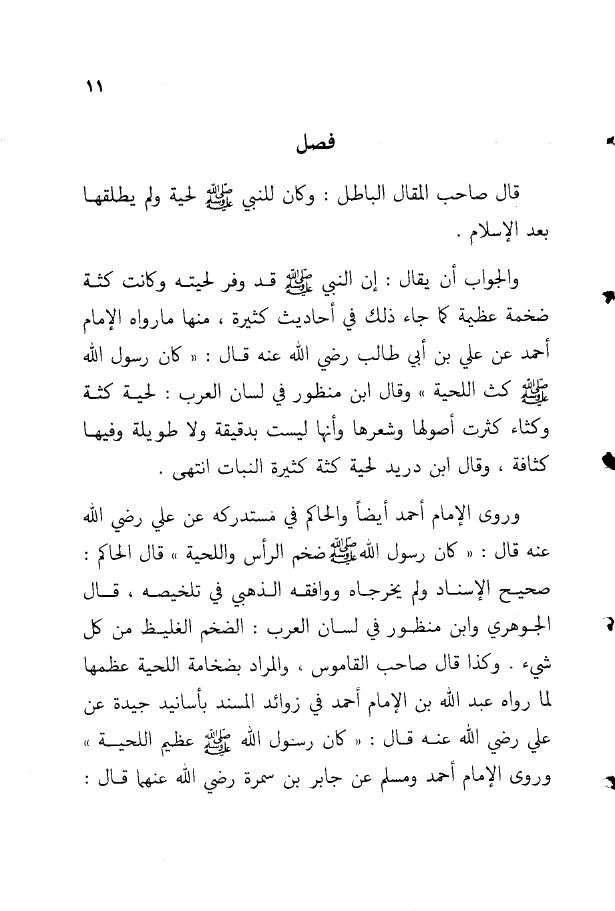 ١١
فصل
قال صاحب المقال الباطل : وكان للنبي ﷺ لحية ولم يطلقها
بعد الإسلام .
والجواب أن يقال : إن النبي ﷺ قد وفر لحيته وكانت كثة
ضخمة عظيمة كما جاء ذلك في أحاديث كثيرة ، منها مارواه الإمام
أحمد عن علي بن أبي طالب رضي الله عنه قال : « كان رسول الله
ﷺ كث اللحية » وقال ابن منظور في لسان العرب : لحية كثة
وكثاء كثرت أصولها وشعرها وأنها ليست بدقيقة ولا طويلة وفيها
كثافة ، وقال ابن دريد لحية كثة كثيرة النبات انتهى .
وروى الإمام أحمد أيضاً والحاكم في مستدركه عن علي رضي الله
عنه قال : « كان رسول الله ﷺ ضخم الرأس واللحية » قال الحاكم :
صحيح الإسناد ولم يخرجاه ووافقه الذهبي في تلخيصه ، قال
الجوهري وابن منظور في لسان العرب : الضخم الغليظ من كل
شيء . وكذا قال صاحب القاموس ، والمراد بضخامة اللحية عظمها
لما رواه عبد الله بن الإمام أحمد في زوائد المسند بأسانيد جيدة عن
علي رضي الله عنه قال : « كان رسول الله ﷺ عظيم اللحية »
وروى الإمام أحمد ومسلم عن جابر بن سمرة رضي الله عنهما قال :